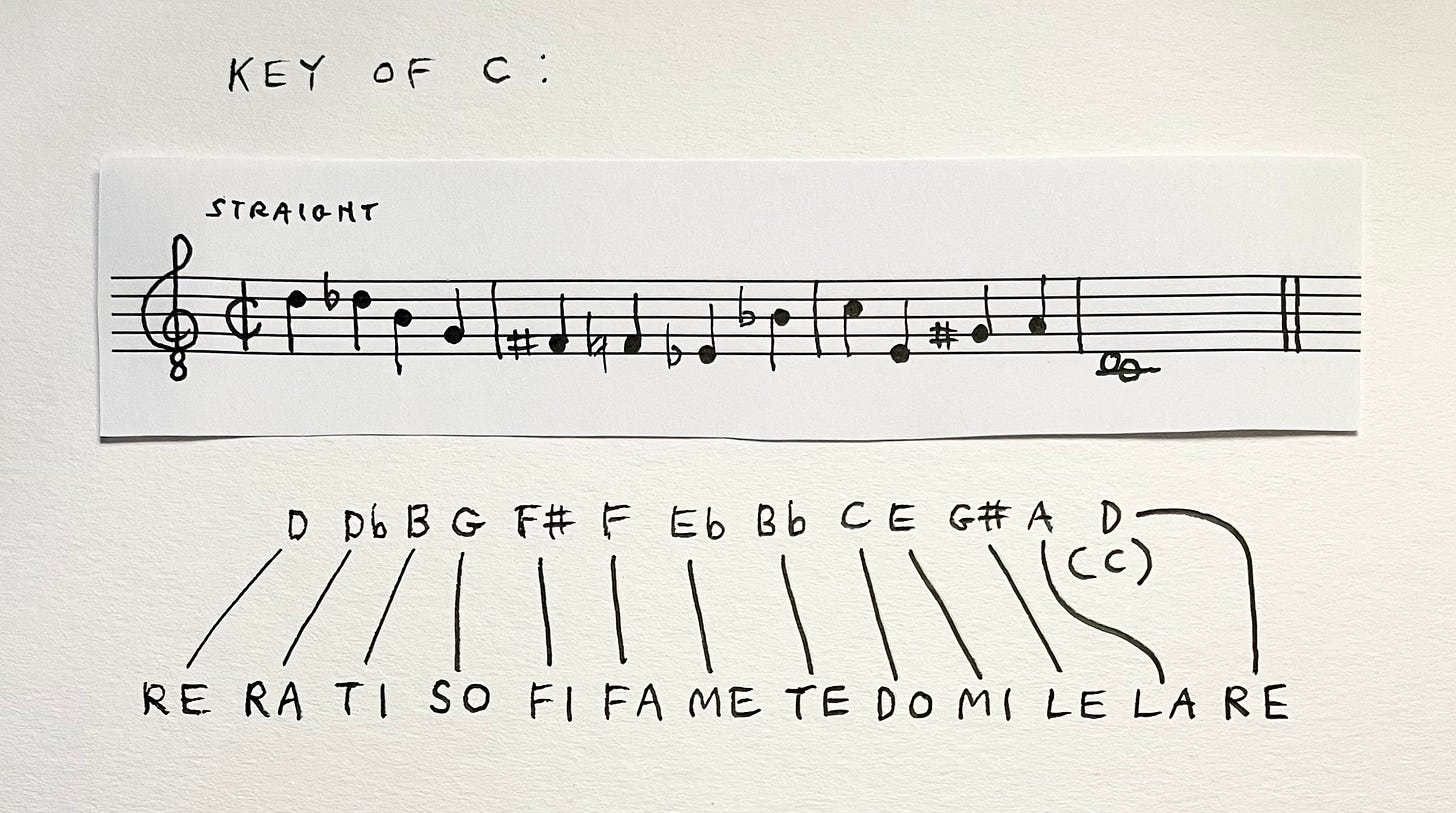 KEY OF C:
STRAIGHT
8
D Db B G F# F Eb Bb C E G# A D
(C)
RE RA TI SO FI FA ME TE DO MI LE LA RE